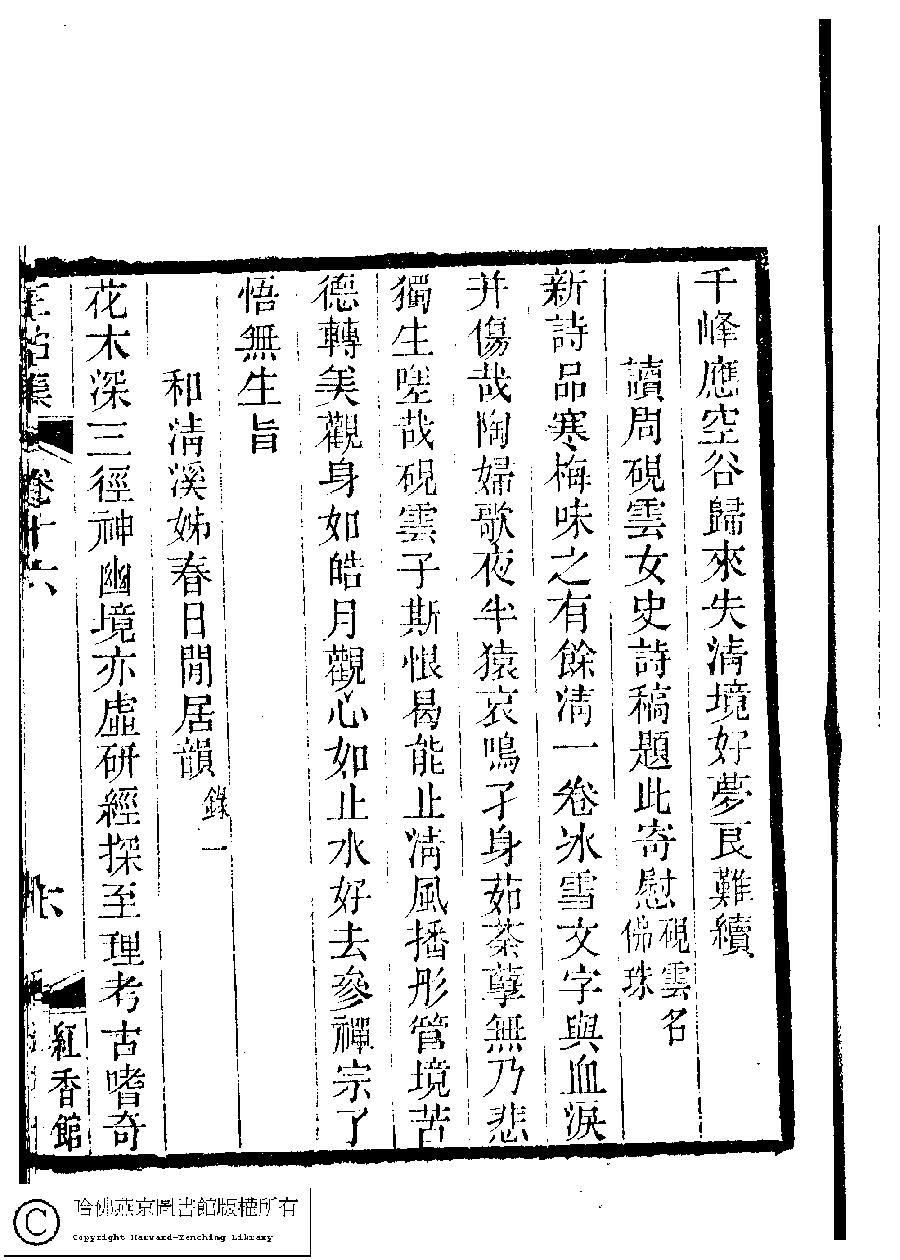 千峰應空谷歸來失清境好夢艮難續
讀周硯雲女史詩稿題此寄慰硯雲名佛珠
新詩品寒梅味之有餘清一卷冰雪文字與血淚
并傷哉陶婦歌夜半猿哀鳴孑身茹荼孽無乃悲
獨生嗟哉硯雲子斯恨曷能止清風播彤管境苦
德轉美觀身如皓月觀心如止水好去參禪宗了
悟無生旨
和清溪姊春日閒居韻錄一
花木深三徑神幽境亦虛研經探至理考古嗜奇
卷十六
紅香館
哈佛燕京圖書館版權所有
Copyright Harvard-Yenching Library